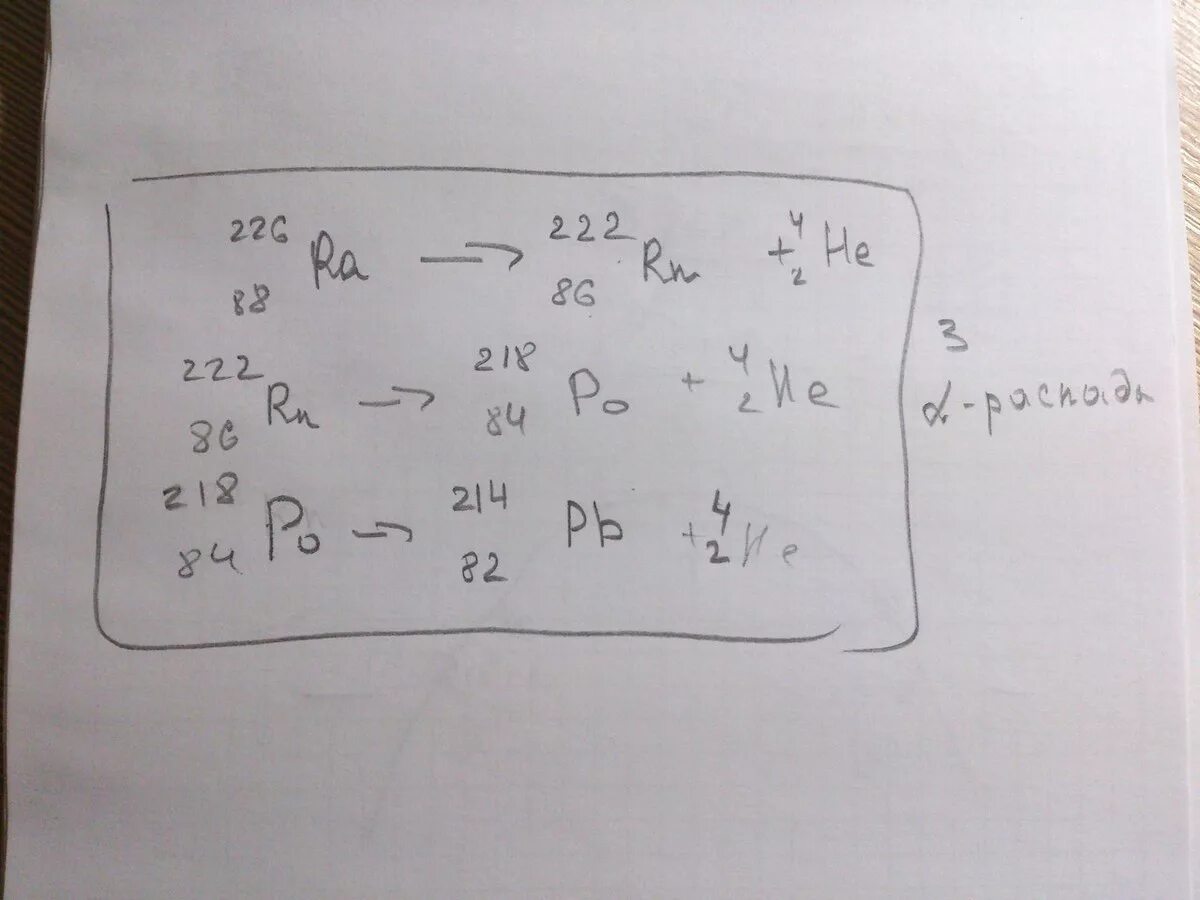 ²²⁶₈₈Ra → ²²²₈₆Rn + ⁴₂He
²²²₈₆Rn → ²¹⁸₈₄Po + ⁴₂He
²¹⁸₈₄Po → ²¹⁴₈₂Pb + ⁴₂He
3
α-распада